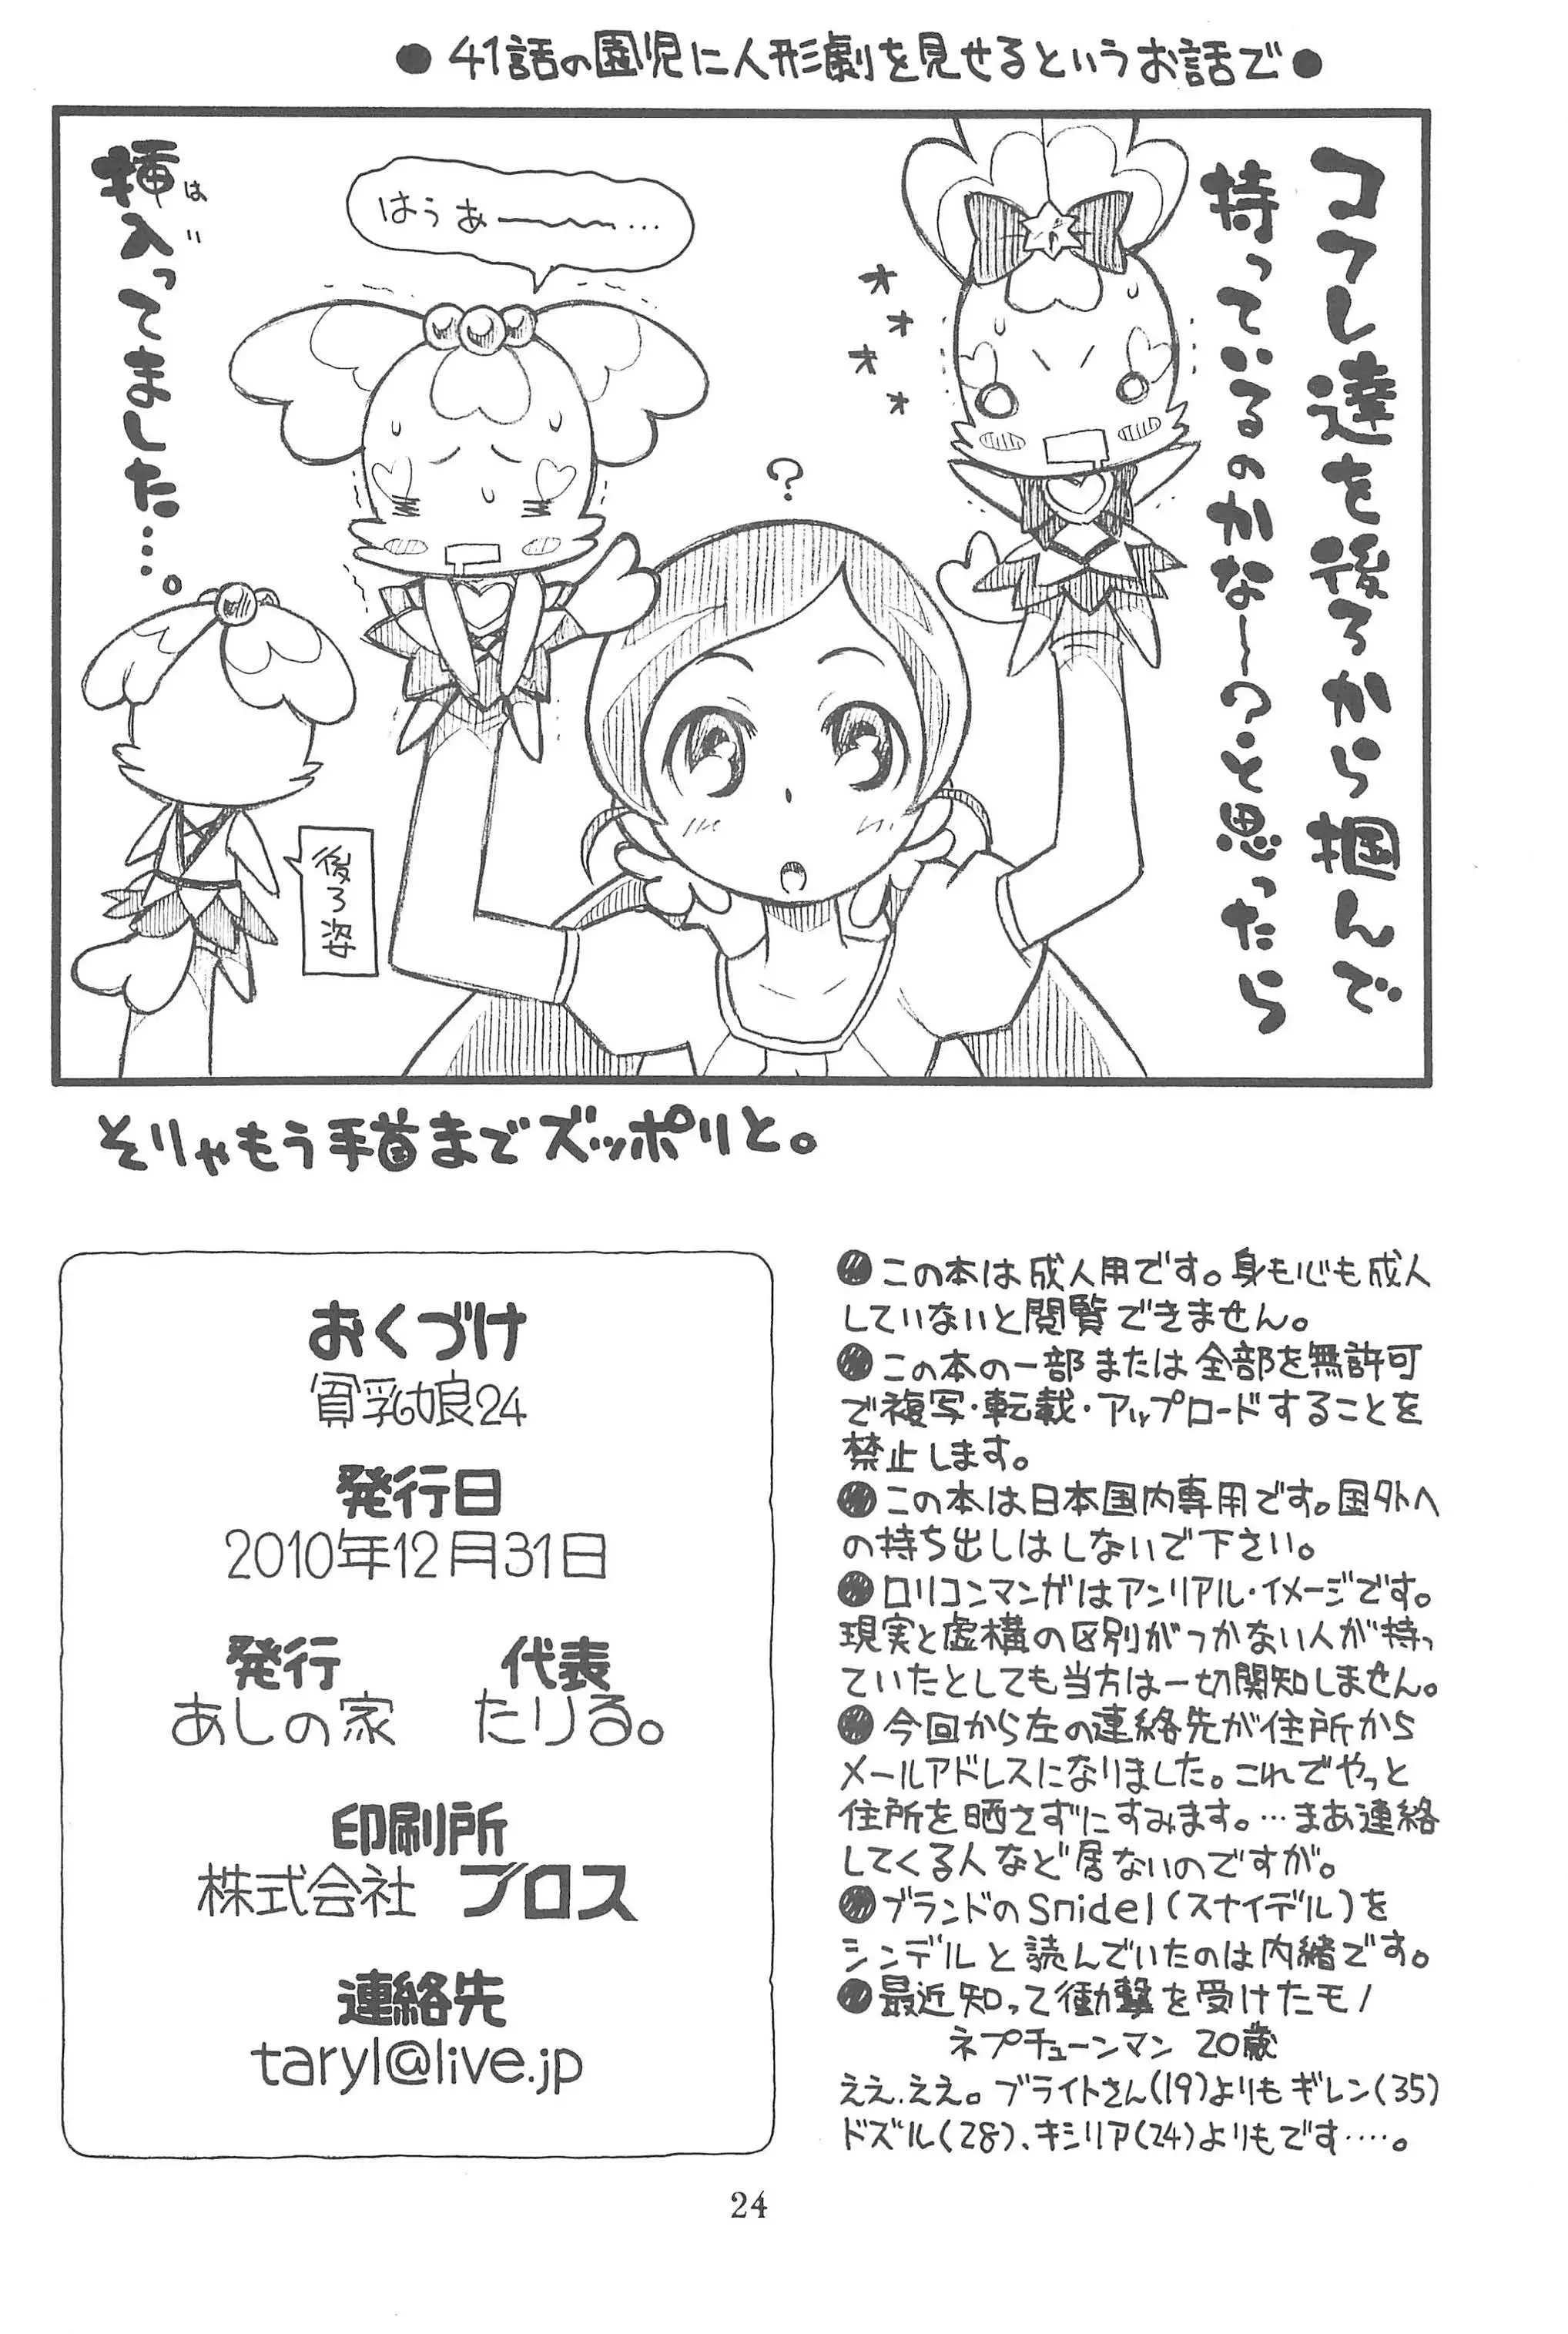 ●41話の園児に人形劇を見せるというお話で●
コフレ達を後ろから掴んで
持っているのかな～?と思ったら
?
はうあ――~~…
挿入ってました…。
は
後ろ姿
そりゃもう手首までズッポリと。
おくづけ
貧乳娘24
発行日
2010年12月31日
発行 代表
あしの家 たりる。
印刷所
株式会社 ブロス
連絡先
taryl@live.jp
●この本は成人用です。身も心も成人
していないと閲覧できません。
●この本の一部または全部を無許可
で複写・転載・アップロードすることを
禁止します。
●この本は日本国内専用です。国外へ
の持ち出しはしないで下さい。
●ロリコンマンガはアンリアル・イメージです。
現実と虚構の区別がつかない人が持っ
ていたとしても当方は一切関知しません。
●今回から左の連絡先が住所から
メールアドレスになりました。これでやっと
住所を晒さずにすみます。…まあ連絡
してくる人など居ないのですが。
●ブランドのSnidel(スナイデル)を
シンデルと読んでいたのは内緒です。
●最近知って衝撃を受けたモノ
ネプチューンマン 20歳
ええ、ええ。ブライトさん(19)よりもギレン(35)
ドズル(28)、キシリア(24)よりもです….。
24